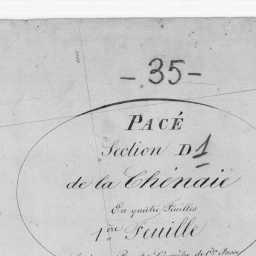 - 35 -
PACÉ
Section D1
de la Chénaie
En quatre Feuilles
1ère Feuille